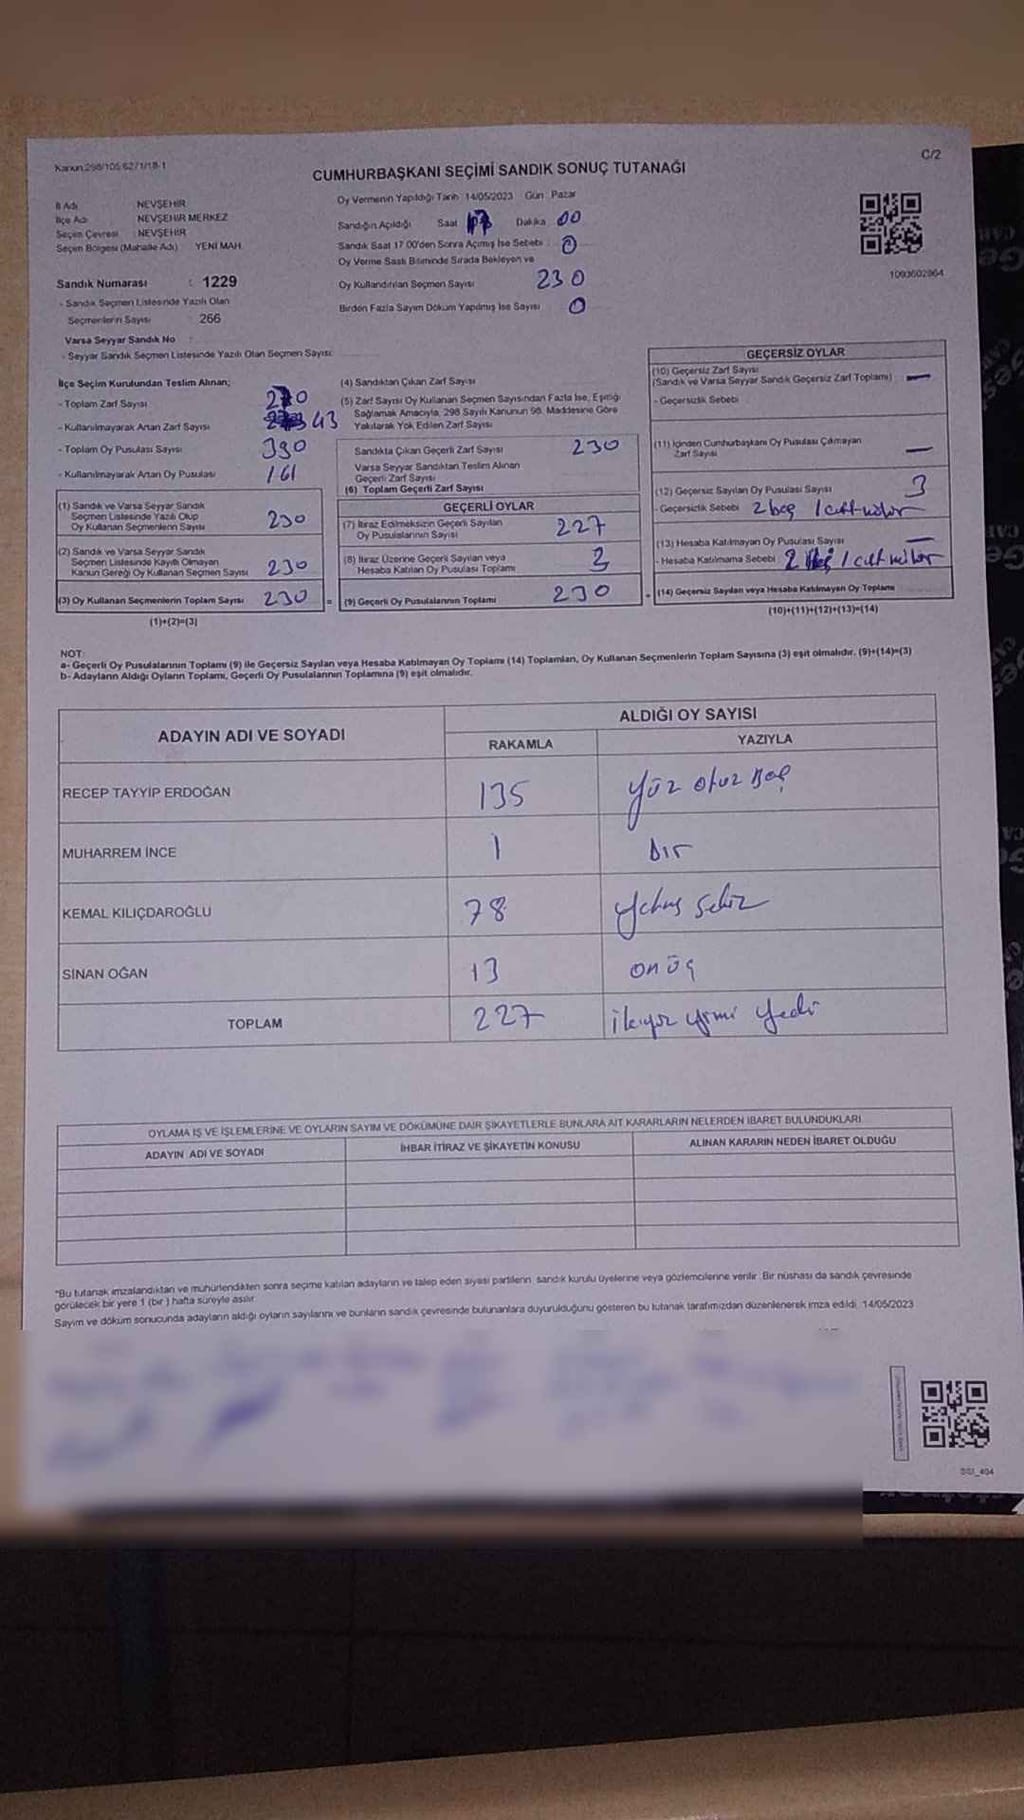 Kanun:298/105 6271/18-1
C/2
CUMHURBAŞKANI SEÇİMİ SANDIK SONUÇ TUTANAĞI
İl Adı NEVŞEHİR
İlçe Adı NEVŞEHİR MERKEZ
Seçim Çevresi : NEVŞEHİR
Seçim Bölgesi (Mahalle Adı) YENİ MAH.
Oy Vermenin Yapıldığı Tarih 14/05/2023 Gün : Pazar
Sandığın Açıldığı Saat 17 Dakika 00
Sandık Saat 17.00'den Sonra Açılmış İse Sebebi : 0
Oy Verme Saati Bitiminde Sırada Bekleyen ve
Oy Kullandırılan Seçmen Sayısı 230
Birden Fazla Sayım Döküm Yapılmış İse Sayısı 0
1093602964
Sandık Numarası : 1229
- Sandık Seçmen Listesinde Yazılı Olan
Seçmenlerin Sayısı 266
Varsa Seyyar Sandık No :
- Seyyar Sandık Seçmen Listesinde Yazılı Olan Seçmen Sayısı:
İlçe Seçim Kurulundan Teslim Alınan;
- Toplam Zarf Sayısı 270
- Kullanılmayarak Artan Zarf Sayısı 43
- Toplam Oy Pusulası Sayısı 390
- Kullanılmayarak Artan Oy Pusulası 161
(1) Sandık ve Varsa Seyyar Sandık
Seçmen Listesinde Yazılı Olup
Oy Kullanan Seçmenlerin Sayısı 230
(2) Sandık ve Varsa Seyyar Sandık
Seçmen Listesinde Kayıtlı Olmayan
Kanun Gereği Oy Kullanan Seçmen Sayısı 230
(3) Oy Kullanan Seçmenlerin Toplam Sayısı 230 =
(1)+(2)=(3)
(4) Sandıktan Çıkan Zarf Sayısı
(5) Zarf Sayısı Oy Kullanan Seçmen Sayısından Fazla İse, Eşitliği
Sağlamak Amacıyla, 298 Sayılı Kanunun 98. Maddesine Göre
Yakılarak Yok Edilen Zarf Sayısı
Sandıkta Çıkan Geçerli Zarf Sayısı 230
Varsa Seyyar Sandıktan Teslim Alınan
Geçerli Zarf Sayısı
(6) Toplam Geçerli Zarf Sayısı
GEÇERLİ OYLAR
(7) İtiraz Edilmeksizin Geçerli Sayılan
Oy Pusulalarının Sayısı 227
(8) İtiraz Üzerine Geçerli Sayılan veya
Hesaba Katılan Oy Pusulası Toplamı 3
(9) Geçerli Oy Pusulalarının Toplamı 230 +
GEÇERSİZ OYLAR
(10) Geçersiz Zarf Sayısı
(Sandık ve Varsa Seyyar Sandık Geçersiz Zarf Toplamı) —
- Geçersizlik Sebebi
(11) İçinden Cumhurbaşkanı Oy Pusulası Çıkmayan
Zarf Sayısı —
(12) Geçersiz Sayılan Oy Pusulası Sayısı 3
- Geçersizlik Sebebi 2 boş 1 çift mühür
(13) Hesaba Katılmayan Oy Pusulası Sayısı —
- Hesaba Katılmama Sebebi : 2 boş 1 çift mühür
(14) Geçersiz Sayılan veya Hesaba Katılmayan Oy Toplamı
(10)+(11)+(12)+(13)=(14)
NOT:
a- Geçerli Oy Pusulalarının Toplamı (9) ile Geçersiz Sayılan veya Hesaba Katılmayan Oy Toplamı (14) Toplamları, Oy Kullanan Seçmenlerin Toplam Sayısına (3) eşit olmalıdır. (9)+(14)=(3)
b- Adayların Aldığı Oyların Toplamı, Geçerli Oy Pusulalarının Toplamına (9) eşit olmalıdır.
ADAYIN ADI VE SOYADI
ALDIĞI OY SAYISI
RAKAMLA YAZIYLA
RECEP TAYYİP ERDOĞAN 135 yüz otuz beş
MUHARREM İNCE 1 bir
KEMAL KILIÇDAROĞLU 78 yetmiş sekiz
SİNAN OĞAN 13 on üç
TOPLAM 227 ikiyüz yirmi yedi
OYLAMA İŞ VE İŞLEMLERİNE VE OYLARIN SAYIM VE DÖKÜMÜNE DAİR ŞİKAYETLERLE BUNLARA AİT KARARLARIN NELERDEN İBARET BULUNDUKLARI
ADAYIN ADI VE SOYADI İHBAR İTİRAZ VE ŞİKAYETİN KONUSU ALINAN KARARIN NEDEN İBARET OLDUĞU
*Bu tutanak imzalandıktan ve mühürlendikten sonra seçime katılan adayların ve talep eden siyasi partilerin sandık kurulu üyelerine veya gözlemcilerine verilir. Bir nüshası da sandık çevresinde
görülecek bir yere 1 (bir ) hafta süreyle asılır.
Sayım ve döküm sonucunda adayların aldığı oyların sayılarını ve bunların sandık çevresinde bulunanlara duyurulduğunu gösteren bu tutanak tarafımızdan düzenlenerek imza edildi. 14/05/2023